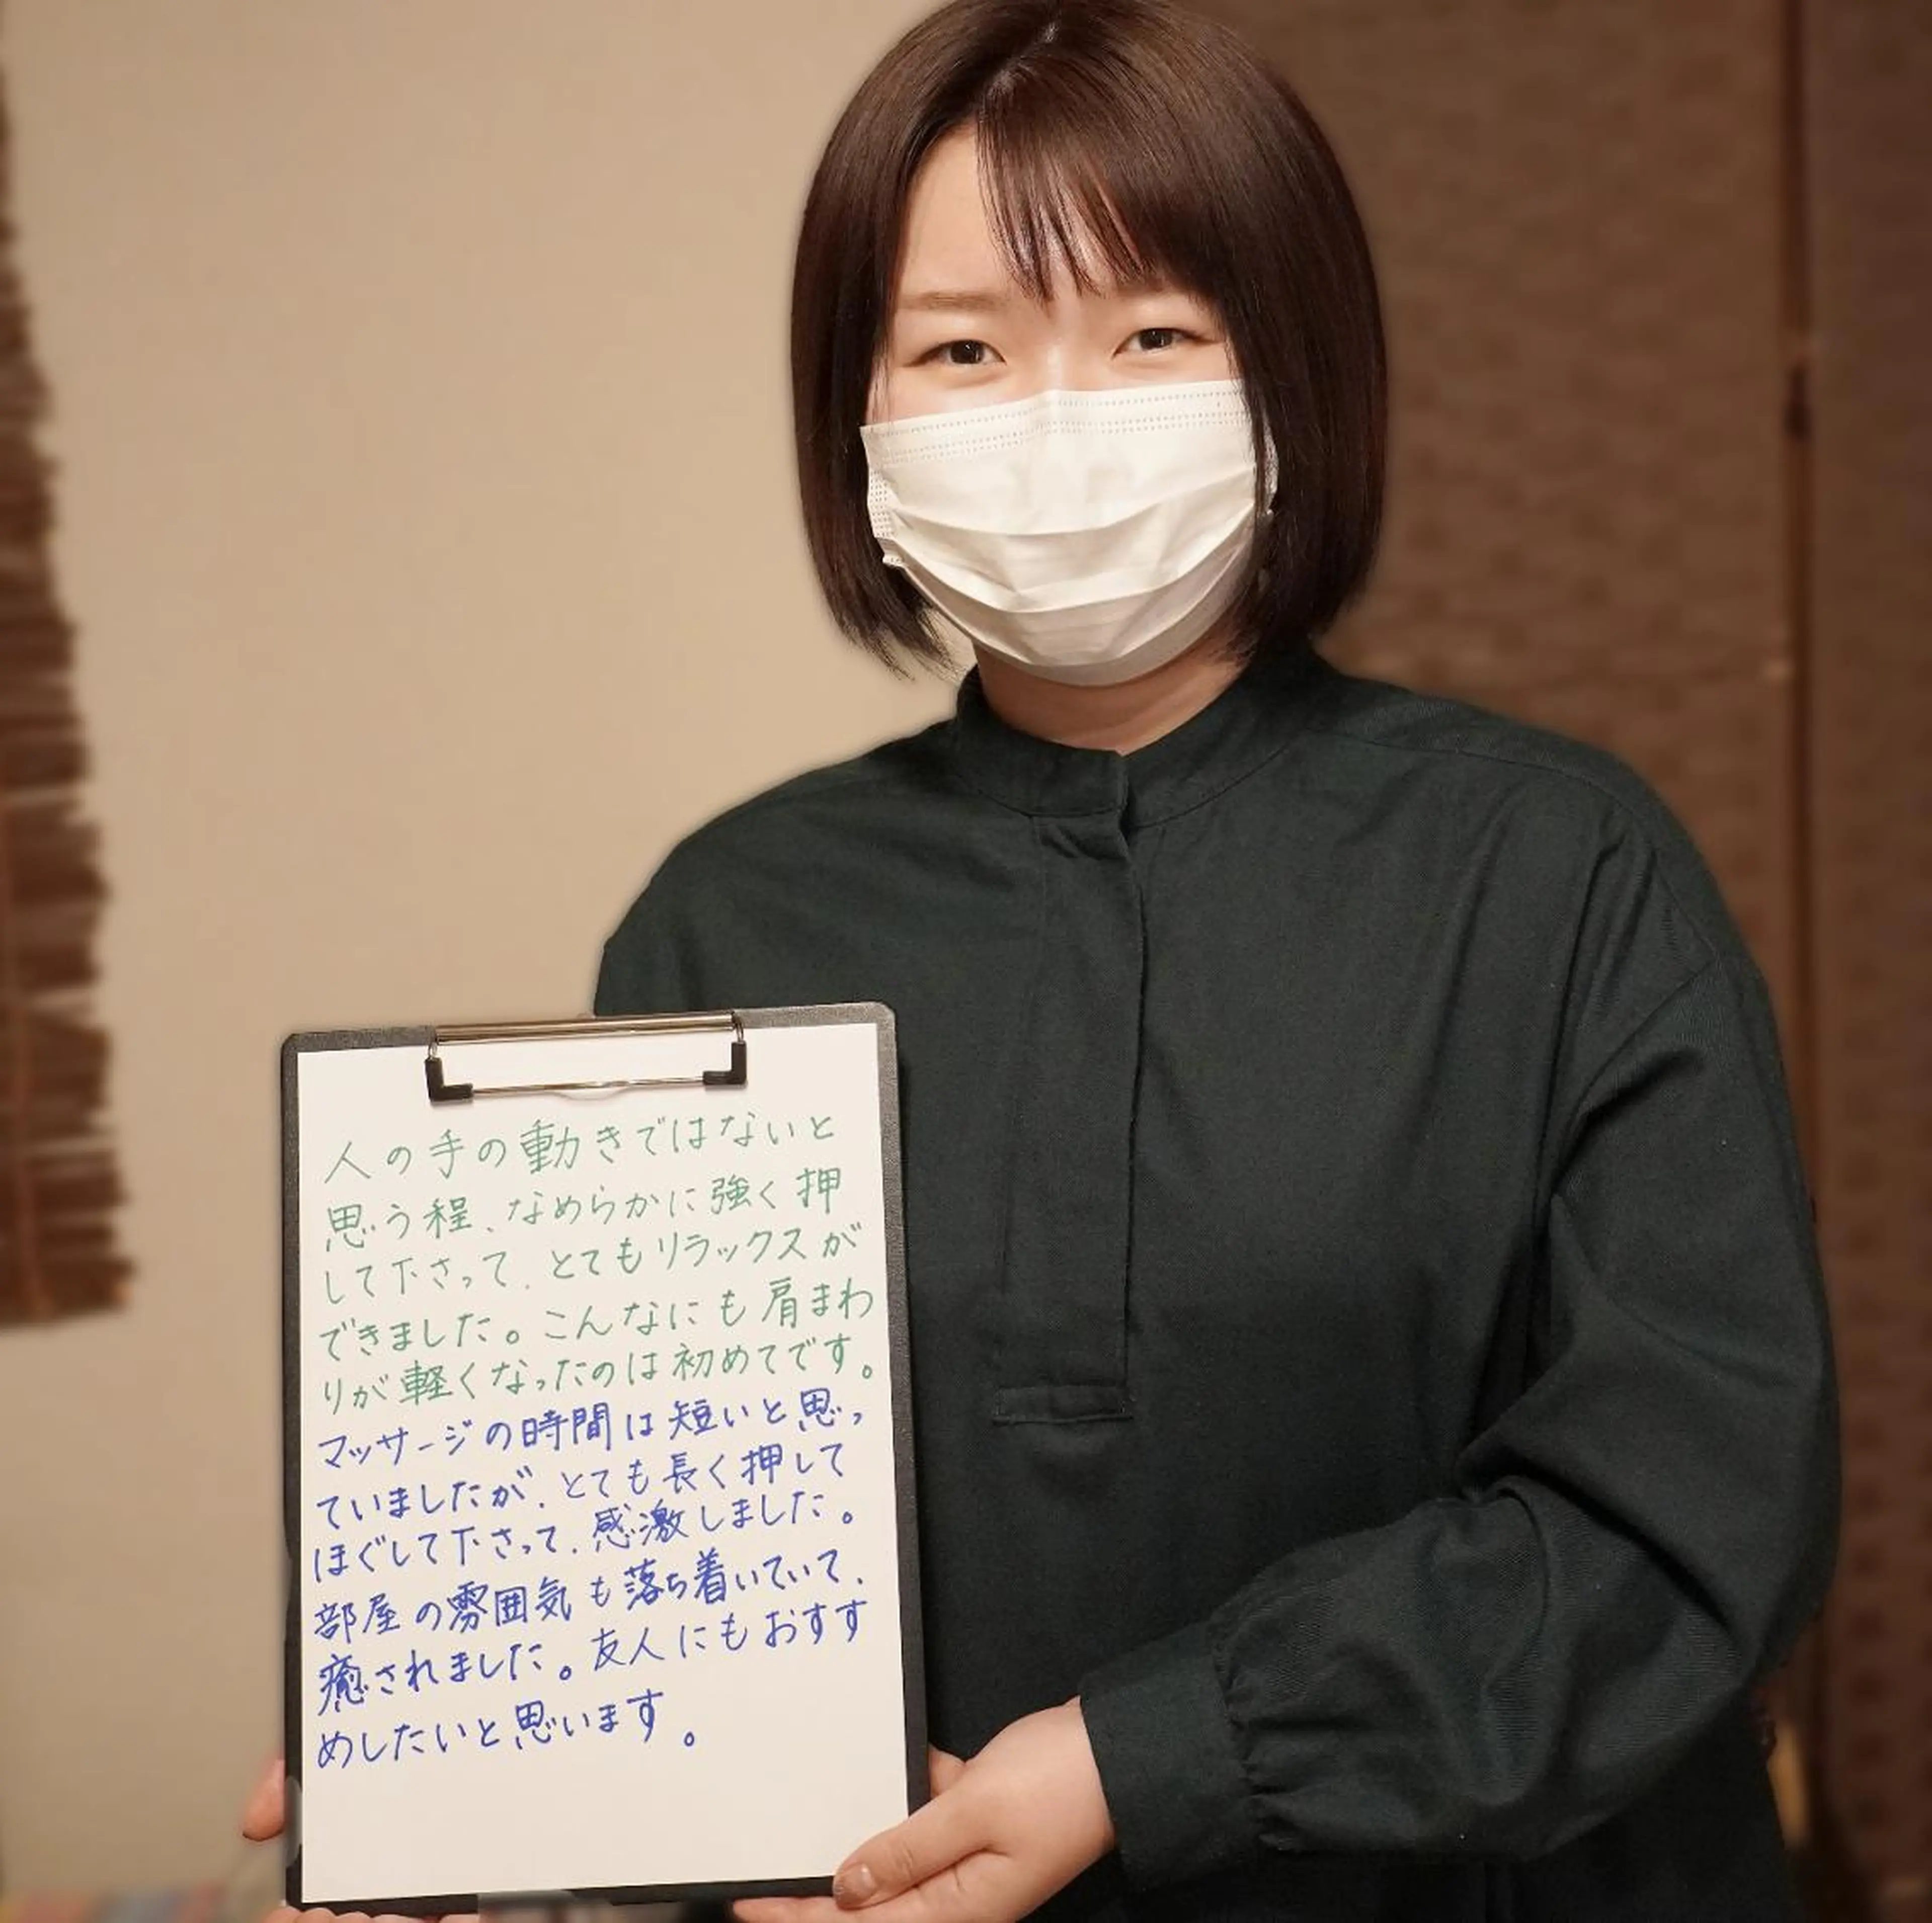 人の手の動きではないと
思う程、なめらかに強く押
して下さって、とてもリラックスが
できました。こんなにも肩まわ
りが軽くなったのは初めてです。
マッサージの時間は短いと思っ
ていましたが、とても長く押して
ほぐして下さって、感激しました。
部屋の雰囲気も落ち着いていて、
癒されました。友人にもおすす
めしたいと思います。